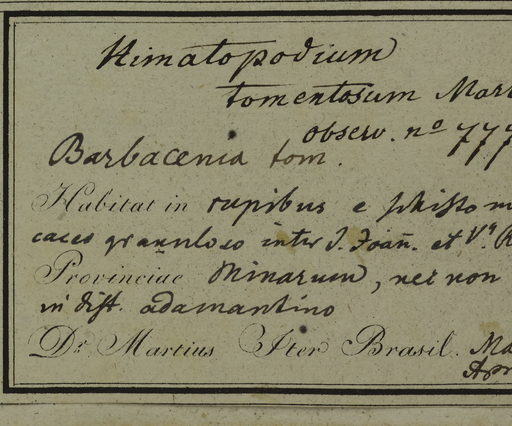 Himatopodium
tomentosum Mart
observ. no 777
Barbacenia tom.
Habitat in rupibus e schisto
caceo granuloso inter S. Joañ. et Va R
Provinciae Minarum, nec non
in dist. adamantino
Dr. Martius Iter Brasil. Ma
Apr